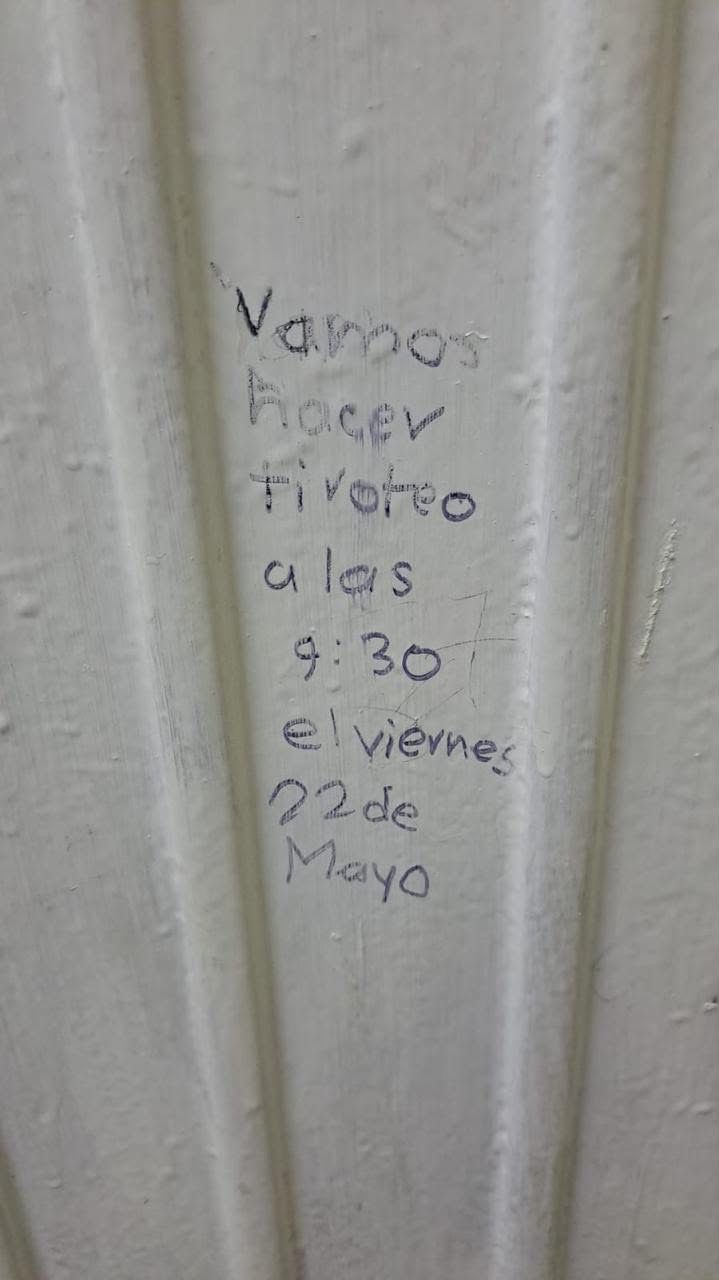 Vamos
hacer
tiroteo
a las
9:30
el viernes
22 de
Mayo